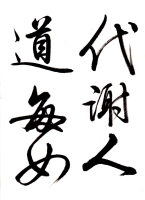 代谢人
道每女